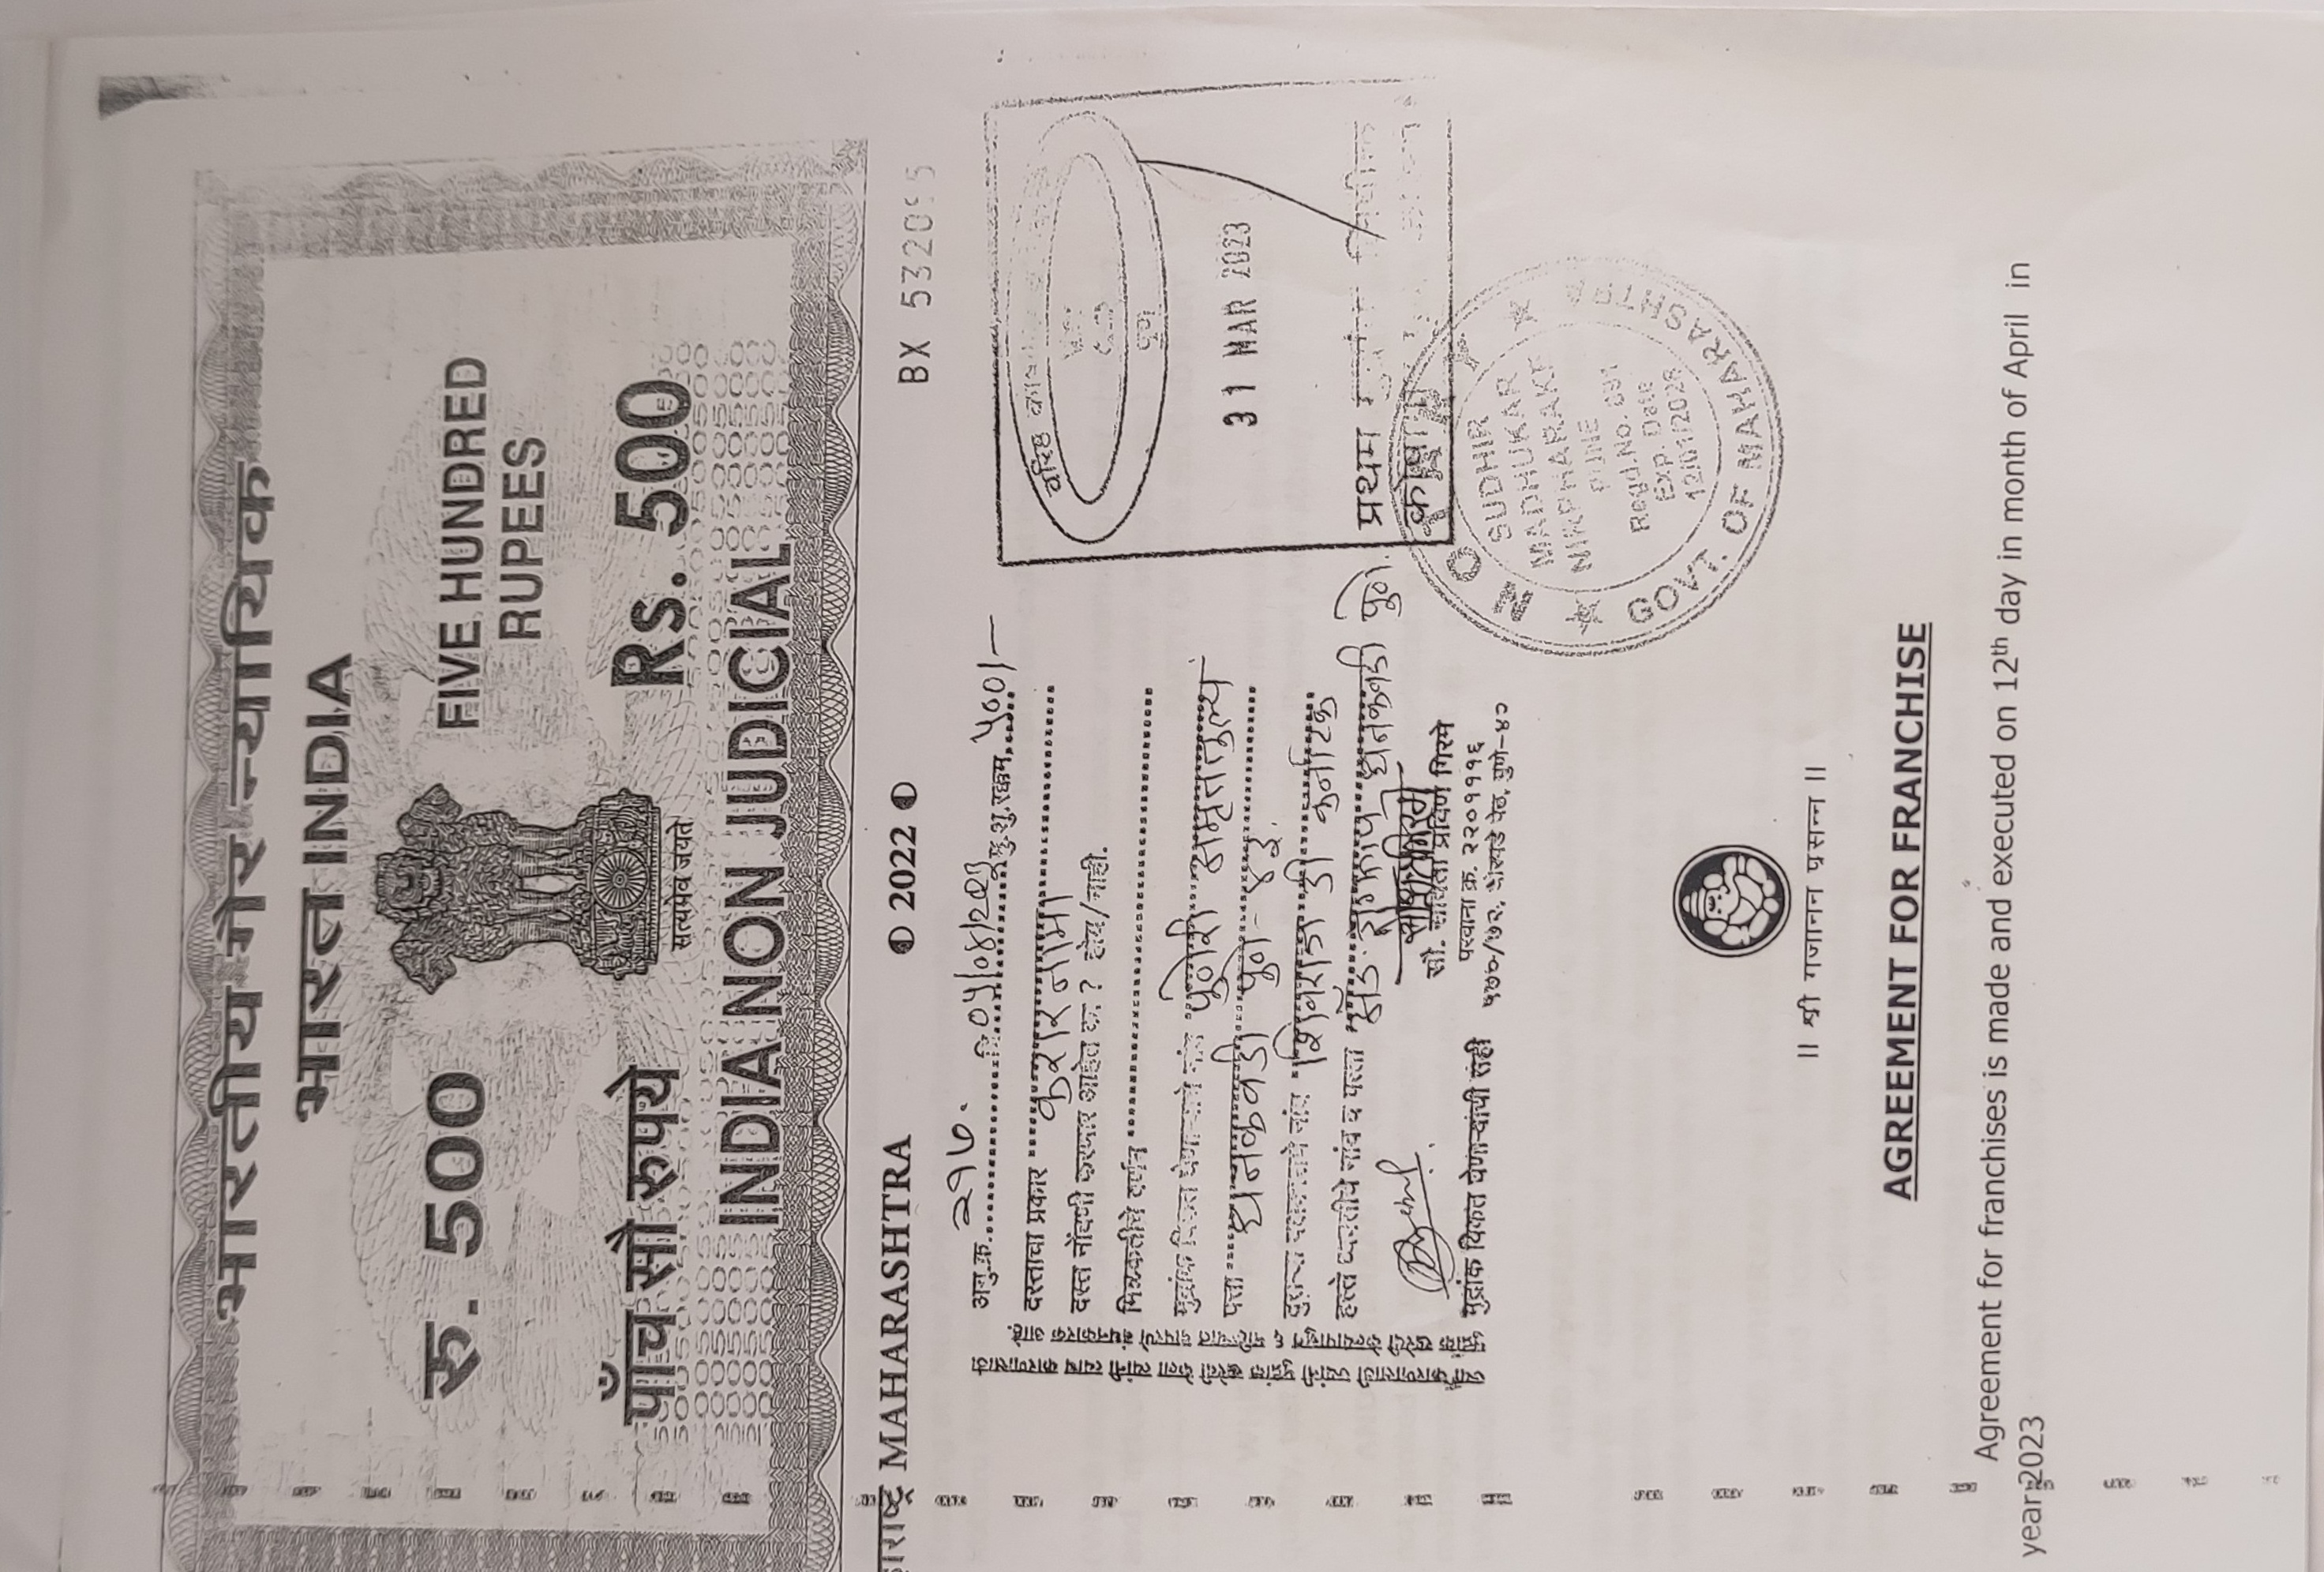 भारतीय गैर न्यायिक
भारत INDIA
रु. 500
FIVE HUNDRED
RUPEES
पाँच सौ रुपये
Rs. 500
सत्यमेव जयते
INDIA NON JUDICIAL
MAHARASHTRA
2022
BX 53209
ज्या कारणासाठी ज्यांनी मुद्रांक खरेदी केला त्यांनी त्याच कारणासाठी
मुद्रांक खरेदी केल्यापासून ६ महिन्यात वापरणे बंधनकारक आहे.
अनु.क्र. २१७. दि. ०५/०४/२०२३ मु.शु.रक्कम ५००/-
दस्ताचा प्रकार करारनामा
दस्त नोंदणी करणार आहेत का ? होय/नाही.
मिळकतीचे वर्णन
मुद्रांक विकत घेणाऱ्याचे नांव पुणेरी अमृततुल्य
पत्ता धनकवडी पुणे-४३.
दुसऱ्या पक्षकाराचे नांव शिवराज डी कर्नाटक
हस्ते व्यक्तीचे नांव व पत्ता अॅड. धनकवडी पुणे.
सौ. सविता प्रविण गिरमे
परवाना क्र. २२०१११६
मुद्रांक विकत घेणाऱ्याची सही
घोरपडे पेठ, पुणे-४२
वरिष्ठ
पुणे
31 MAR 2023
प्रथम मुद्रांक लिपीक
NOTARY
SUDHIR
MADHUKAR
PUNE
Regd.No.
Exp. Date
12/01/2028
GOVT. OF MAHARASHTRA
॥ श्री गजानन प्रसन्न ॥
AGREEMENT FOR FRANCHISE
Agreement for franchises is made and executed on 12th day in month of April in
year 2023